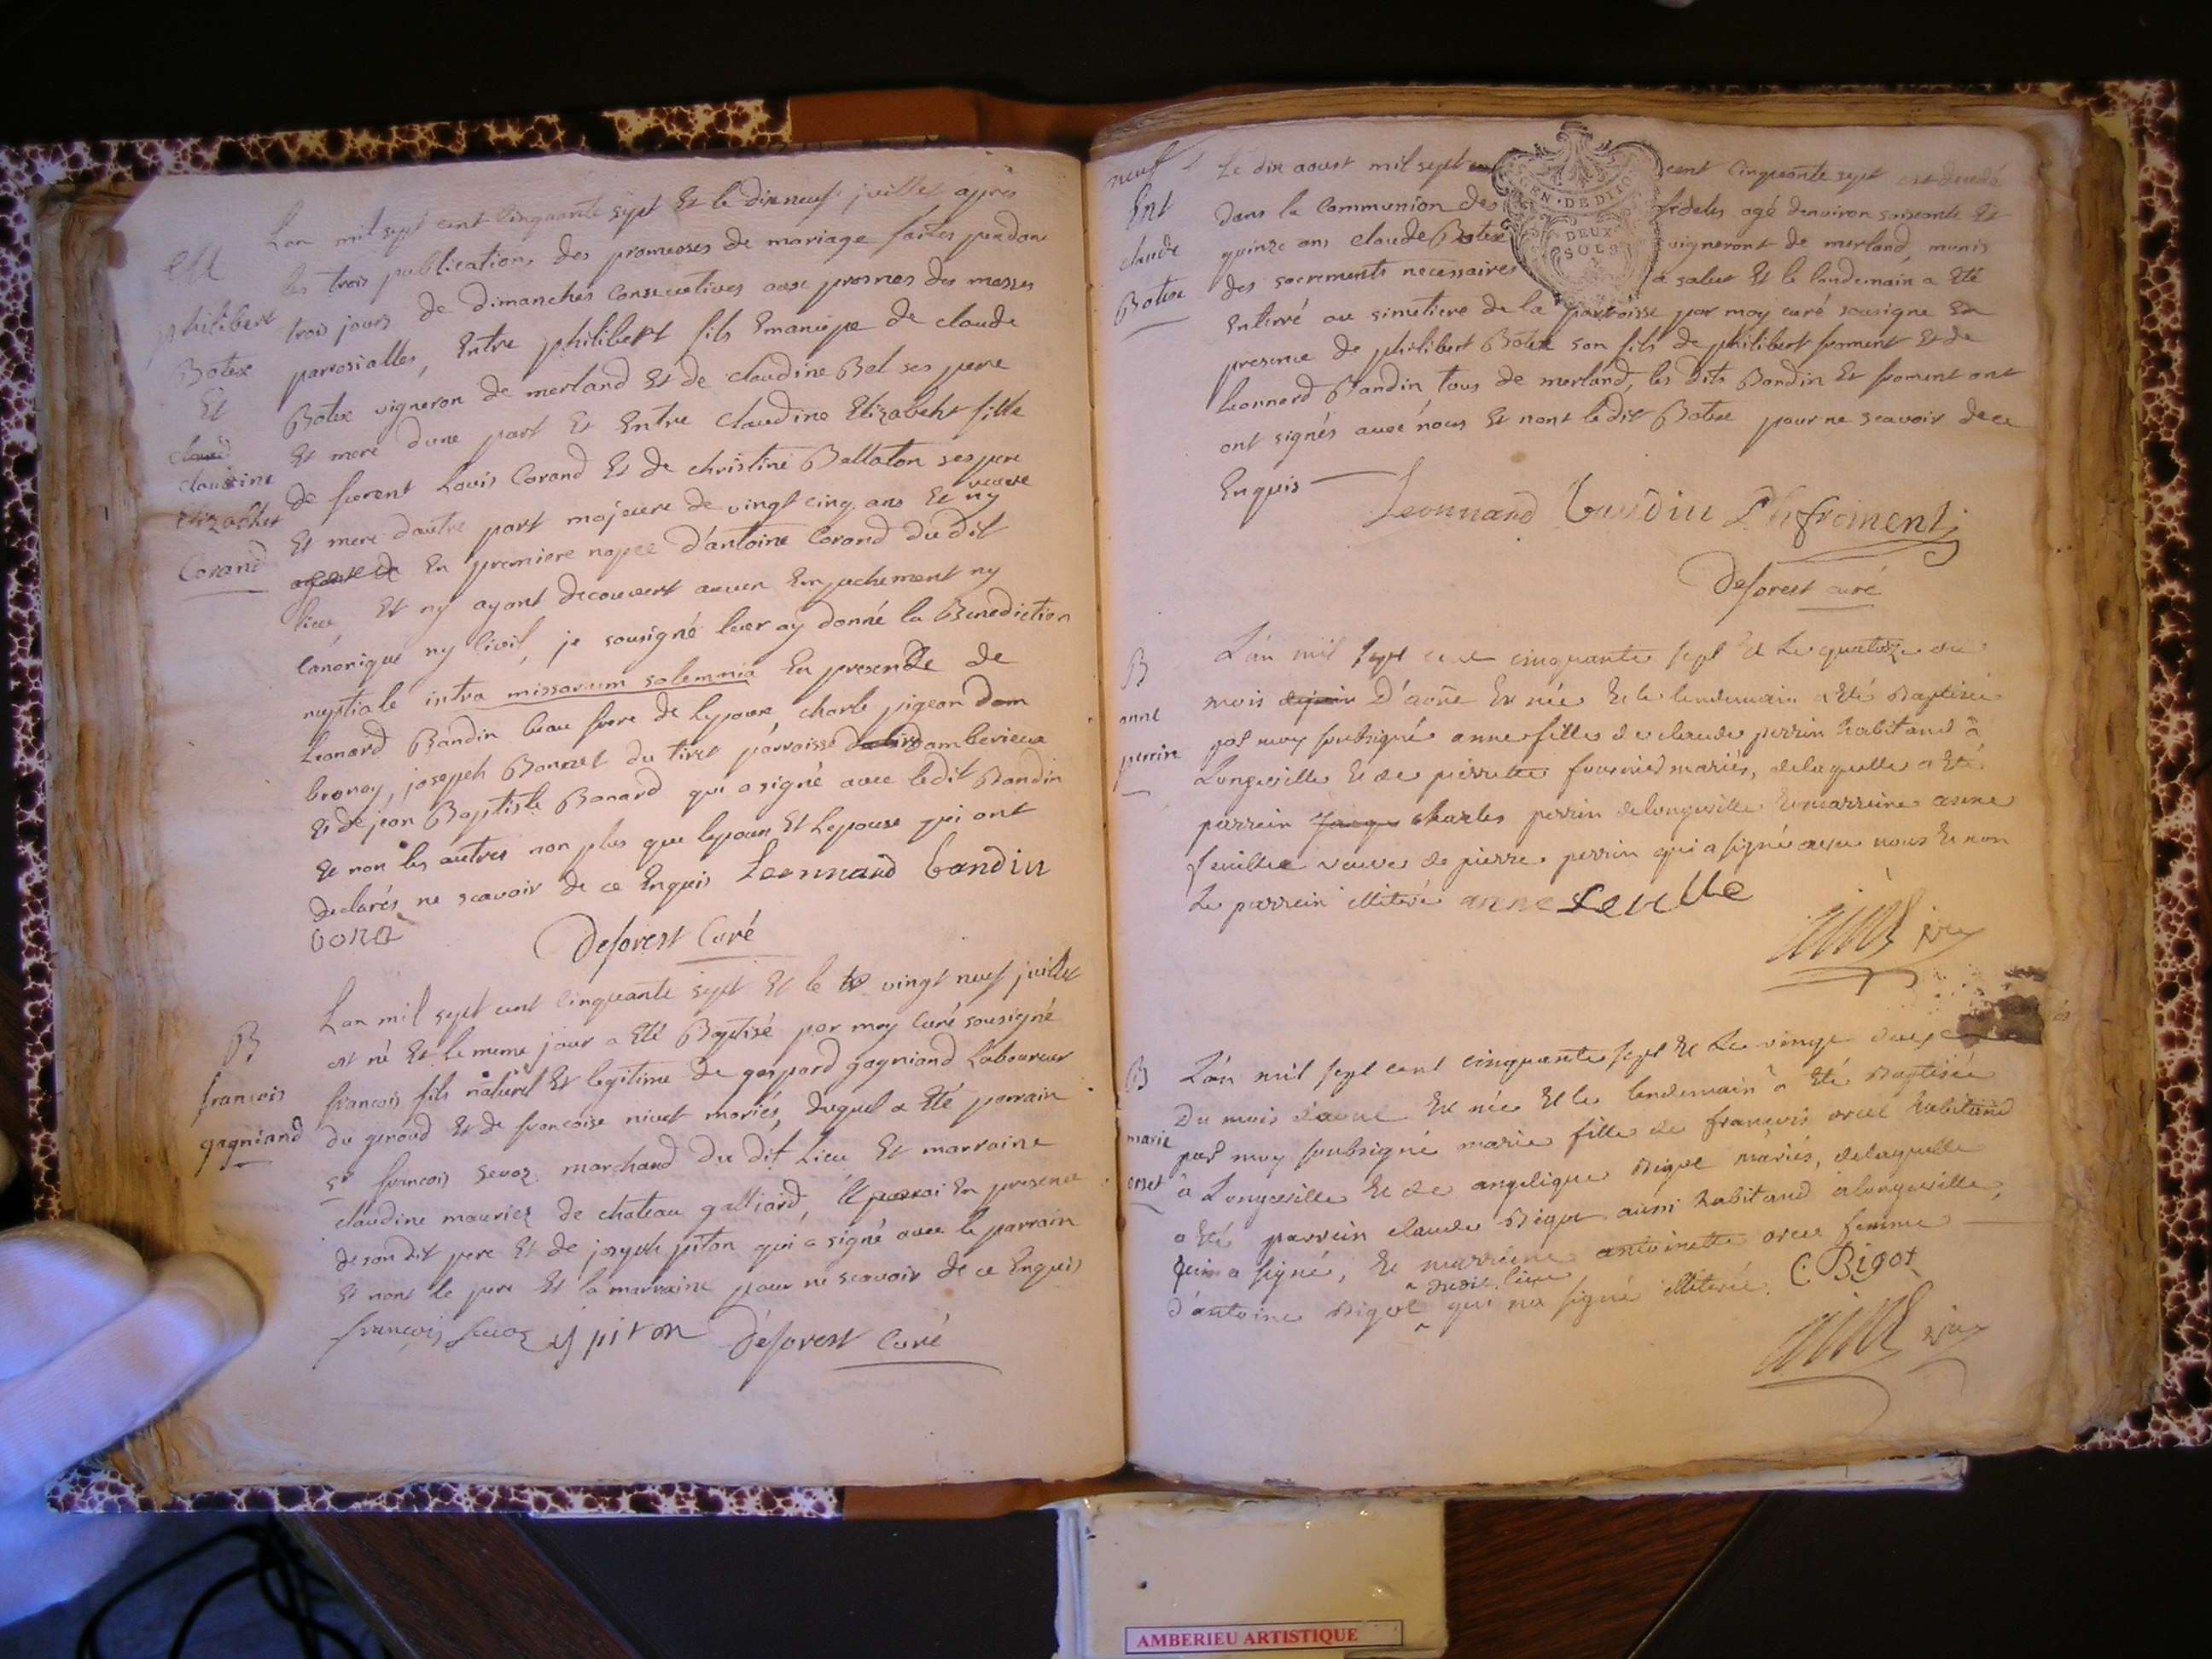 Lan mil sept cent Cinquante sept Et le dix neuf juillet apres
les trois publications des promesses de mariage faites pendant
trois jours de dimanches Consecutives aux prosnes des messes
parrosialles, Entre philibert fils Emancipe de claude
Botex vigneron de merland Et de claudine Bel ses pere
Et mere dune part Et Entre claudine Elizabeht fille
de Louis Corand Et de christine Ballaton ses pere
Et mere dautre part majeure de vingt cinq ans Et veuve
En premiere nopce d'antoine Corand du dit
lieu Et ny ayant decouvert aucun Empechement ny
Canonique ny Civil, je sousigné leur ay donné la Benediction
nuptiale intra missarum solemnia En presence de
Leonard Bandin beau frere de lepoux, charle pigeon
bronay, joseph Bonnet du tiret parroisse damberieux
Et de jean Baptiste Bonard qui a signé avec ledit Bandin
Et non les autres non plus que lepoux Et Lepouse qui ont
declarés ne scavoir de ce Enquis Leonnard bandin
bona
Deforest Curé
philibert
Botex
Et
claudine
Elizabeht
Corand
Lan mil sept cent Cinquante sept Et le vingt neuf juillet
est né Et le meme jour a Eté Baptisé par moy Curé sousigné
francois fils naturel Et legitime de gaspard gagniand Laboureur
du geraud Et de francoise nivet mariés, duquel a Eté parrain
sr francois sevoz marchand du dit Lieu Et marraine
claudine mauriez de chateau galliard, En presence
de son dit pere Et de joseph piton qui a signé avec le parrain
Et nont le pere Et la marraine pour ne scavoir de ce Enquis
françois sevoz piton Deforest Curé
B
francois
gagniand
neuf
Ent
claude
Botex
Le dix aoust mil sept cent Cinquante sept est decedé
dans la Communion des fideles agé denviron soixante Et
quinze ans claude Botex vigneront de merland, munis
des sacrements necessaires a salut Et le landemain a Eté
Enterré au simetiere de la parroisse par moy curé sousigne En
presence de philibert Botex son fils de philibert froment Et de
Leonnard Bandin, tous de merland, les dits Bandin Et froment ont
ont signés avec nous Et nont le dit Botex pour ne scavoir de ce
Enquis
GEN. DE DIJON
DEUX
SOLS
Leonnard bandin Ph froment
Deforest curé
B
anne
perrin
L'an mil sept cent cinquante sept Et Le quatorze du
mois D'aout Est née Et le lendemain a Eté Baptisée
par moy soubsigné anne fille de claude perrin habitand à
Longeville Et de pierrette mariés, delaquelle a Eté
parrein charles perrin de longeville Et marreine anne
feuillee veuve de pierre perrin qui a signé avec nous Et non
Le parrein illiteré anne feuille
B
marie
orset
L'an mil sept cent cinquante sept Et Le vingt
Du mois d'aout Est née Et le lendemain a Eté Baptisée
par moy soubsigné marie fille de françois orset habitand
à Longeville Et de angelique Bigot mariés, delaquelle
a Eté parrein claude Bigot aussi habitand à longeville,
qui a signé, Et marreine antoinette orset femme
d'antoine Bigot dudit lieu qui n'a signé illiterée. C Bigot
AMBERIEU ARTISTIQUE